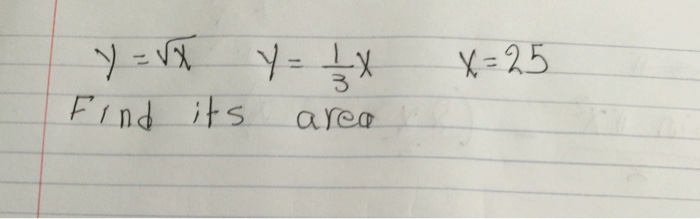 y = √x y = 1/3 x x = 25
Find its area